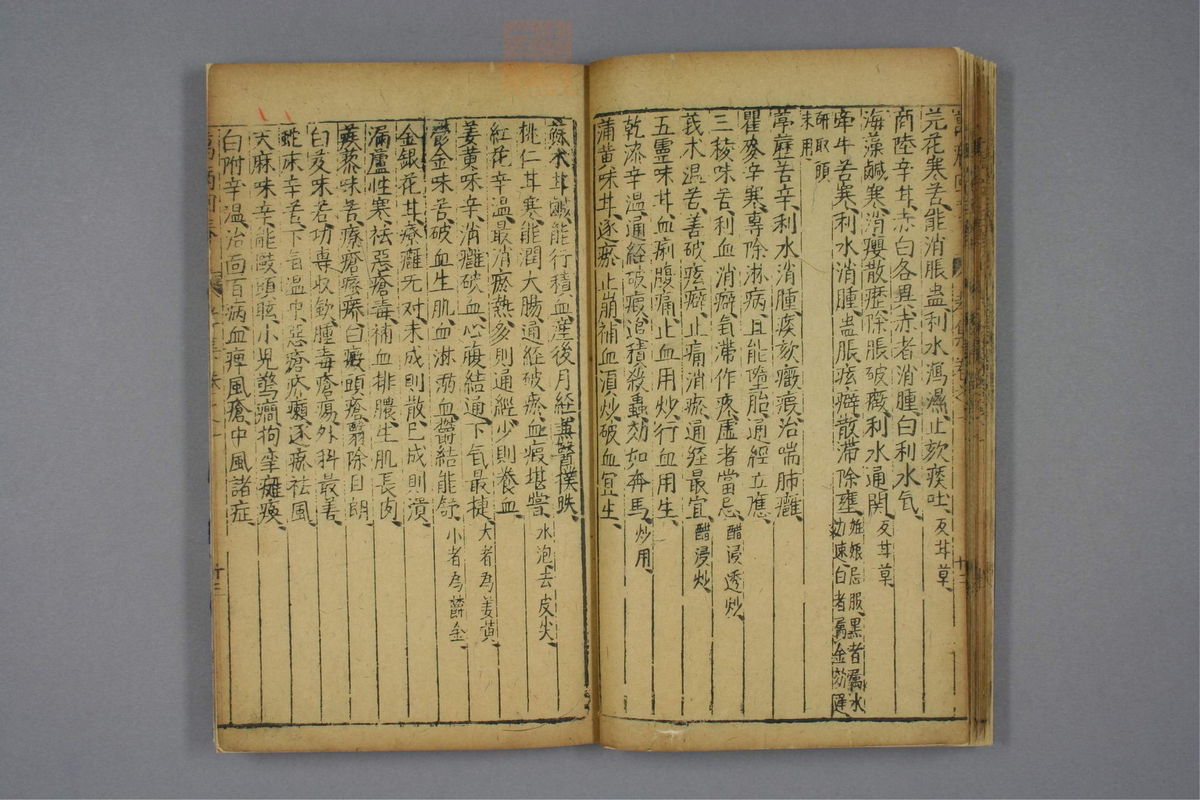 芫花寒苦能消脹蠱利水瀉濕止欬痰吐反甘草
商陸辛甘赤白各異赤者消腫白利水气
海藻鹹寒消癭散癧除脹破癥利水通関反甘草
牽牛苦寒利水消腫蠱脹痃癖散滞除壅妊娠忌服黑者属水効速白者属金効遲
研取頭末用
葶藶苦辛利水消腫痰欬癥瘕治喘肺癰
瞿麥辛寒專除淋病且能墮胎通經立應
三稜味苦利血消癖氣滞作疼虛者當忌醋浸透炒
莪朮温苦善破痃癖止痛消瘀通經最宜醋浸炒
五靈味甘血痢腹痛止血用炒行血用生
乾漆辛温通經破瘕追積殺蟲効如奔馬炒用
蒲黃味甘逐瘀止崩補血須炒破血宜生
蘇木甘鹹能行積血產後月經兼醫撲跌
桃仁甘寒能潤大腸通經破瘀血瘕堪嘗水泡去皮尖
紅花辛温最消瘀熱多則通經少則養血
姜黃味辛消癰破血心腹結通下氣最捷大者為姜黃
鬱金味苦破血生肌血淋溺血鬱結能舒小者為鬱金
金銀花甘療癰无对未成則散已成則潰
漏蘆性寒祛惡瘡毒補血排膿生肌長肉
蒺藜味苦療瘡瘙癢白癜頭瘡翳除目朗
白芨味苦功專收歛腫毒瘡瘍外科最善
蛇床辛苦下气温中惡瘡疥癩逐瘀祛風
天麻味辛能驅頭眩小兒驚癇拘攣癱瘓
白附辛温治面百病血痺風瘡中風諸症
萬病回春
十三